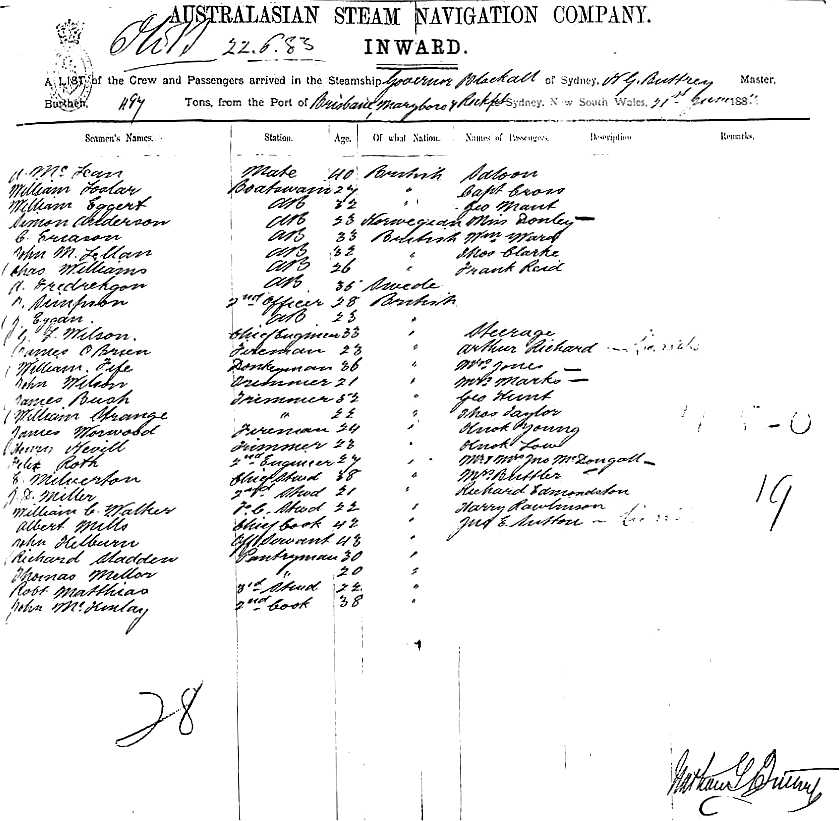 AUSTRALASIAN STEAM NAVIGATION COMPANY.
22.6.83
INWARD.
A LIST of the Crew and Passengers arrived in the Steamship Governor Blackall of Sydney, N G Buttrey Master,
Burthen, 497 Tons, from the Port of Brisbane, Maryboro & Rockptn Sydney, New South Wales, 21st June 188
Seamen's Names. Station. Age. Of what Nation. Names of Passengers. Description Remarks.
A. McLean Mate 40 British Saloon
William Boatswain 27 " Capt Cross
William Eggert AB 32 " Geo Mant
Simon Anderson AB 23 Norwegian Miss Donley —
C. Ericson AB 33 British Wm Ward
John McLellan AB 32 " Thos Clarke
Chas Williams AB 26 " Frank Reid
A. AB 35 Swede
Simpson 2nd Officer 28 British
J. Egan AB 23 "
J. Wilson. Chief Engineer 33 " Steerage
James O'Brien Fireman 23 " Arthur Richard —
William Fife Donkeyman 36 " Mrs Jones —
John Wilson Trimmer 21 " Mrs Marks —
James Bush Trimmer 32 " Geo Hunt
William Strange " 22 " Thos Taylor
James Norwood Fireman 24 " Young
Henry Nevill Trimmer 23 " Low
Felix Roth 2nd Engineer 27 " Mr & Mrs Jno McDougall —
E. Milverton Chief Stwd 38 " Mrs Buttler
J. D. Miller 2nd Stwd 21 " Richard Edmondston
William C. Walker F.C. Stwd 22 " Harry Rawlinson
Albert Mills Chief Cook 42 " Jno E Sutton —
John Helburn Off Servant 43 "
Richard Sladden Pantryman 30 "
Thomas Mellor " 20 "
Robt Matthias 3rd Stwd 22 "
John McKinlay 2nd Cook 38 "
19
28